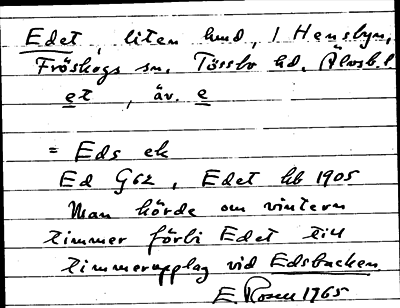 Edet, liten hmd, i Hensbyn,
Fröskogs sn. Tössbo hd. Älvsb. l
et, äv. e
= Eds ek
Ed G62, Edet hb 1905
Man körde om vintern
timmer förbi Edet till
timmerupplag vid Edsbacken.
E. Rosen 1965